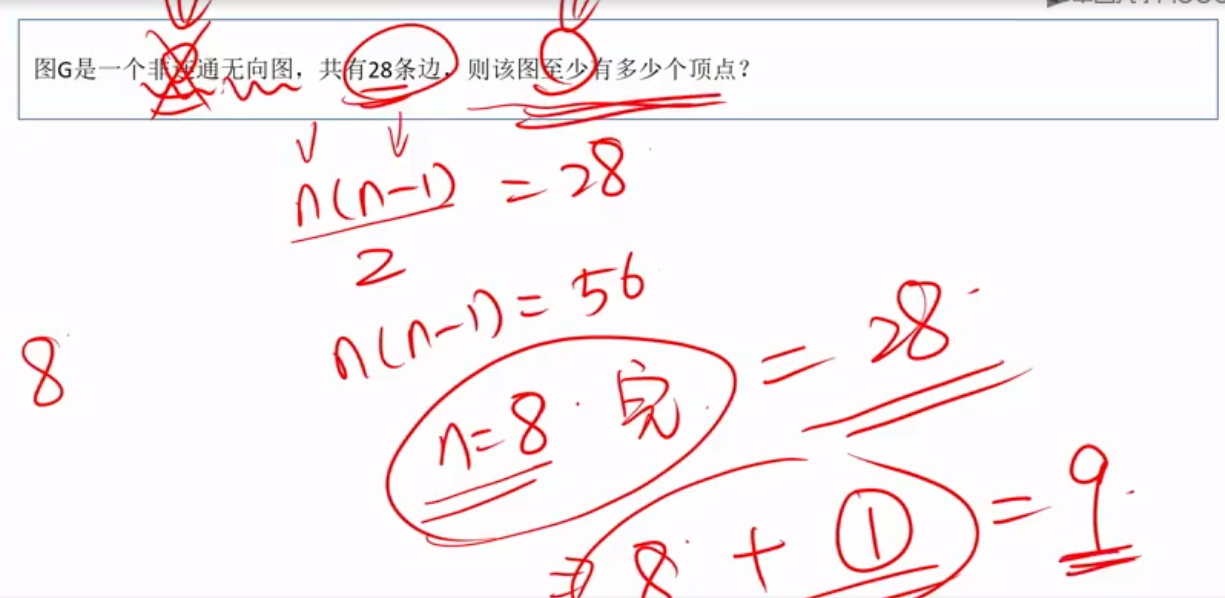 图G是一个非连通无向图，共有28条边，则该图至少有多少个顶点？
n(n-1)/2 = 28
n(n-1) = 56
8
n=8 完 = 28
8 + ① = 9